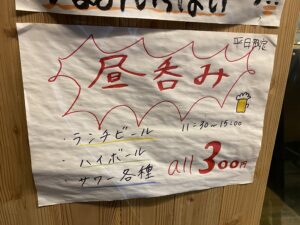 平日限定
昼呑み
・ランチビール
11:30~15:00
・ハイボール
・サワー各種
all 300円